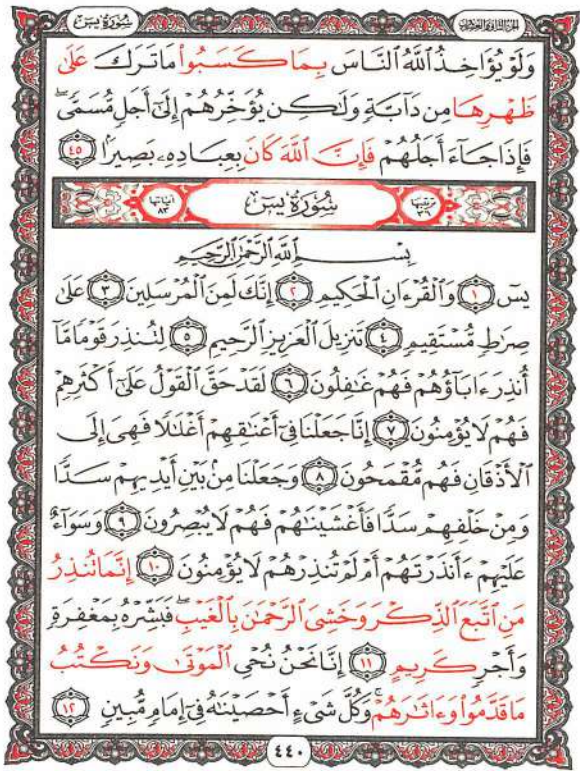 سُورَةُ يسٓ
الجزء الثاني والعشرون
وَلَوْ يُؤَاخِذُ ٱللَّهُ ٱلنَّاسَ بِمَا كَسَبُوا۟ مَا تَرَكَ عَلَىٰ
ظَهْرِهَا مِن دَآبَّةٍ وَلَٰكِن يُؤَخِّرُهُمْ إِلَىٰٓ أَجَلٍ مُّسَمًّى ۖ
فَإِذَا جَآءَ أَجَلُهُمْ فَإِنَّ ٱللَّهَ كَانَ بِعِبَادِهِۦ بَصِيرًۢا ٤٥
ترتيبها ٣٦ سُورَةُ يسٓ آياتها ٨٣
بِسْمِ ٱللَّهِ ٱلرَّحْمَٰنِ ٱلرَّحِيمِ
يسٓ ١ وَٱلْقُرْءَانِ ٱلْحَكِيمِ ٢ إِنَّكَ لَمِنَ ٱلْمُرْسَلِينَ ٣ عَلَىٰ
صِرَٰطٍ مُّسْتَقِيمٍ ٤ تَنزِيلَ ٱلْعَزِيزِ ٱلرَّحِيمِ ٥ لِتُنذِرَ قَوْمًا مَّآ
أُنذِرَ ءَابَآؤُهُمْ فَهُمْ غَٰفِلُونَ ٦ لَقَدْ حَقَّ ٱلْقَوْلُ عَلَىٰٓ أَكْثَرِهِمْ
فَهُمْ لَا يُؤْمِنُونَ ٧ إِنَّا جَعَلْنَا فِىٓ أَعْنَٰقِهِمْ أَغْلَٰلًا فَهِىَ إِلَى
ٱلْأَذْقَانِ فَهُم مُّقْمَحُونَ ٨ وَجَعَلْنَا مِنۢ بَيْنِ أَيْدِيهِمْ سَدًّا
وَمِنْ خَلْفِهِمْ سَدًّا فَأَغْشَيْنَٰهُمْ فَهُمْ لَا يُبْصِرُونَ ٩ وَسَوَآءٌ
عَلَيْهِمْ ءَأَنذَرْتَهُمْ أَمْ لَمْ تُنذِرْهُمْ لَا يُؤْمِنُونَ ١٠ إِنَّمَا تُنذِرُ
مَنِ ٱتَّبَعَ ٱلذِّكْرَ وَخَشِىَ ٱلرَّحْمَٰنَ بِٱلْغَيْبِ ۖ فَبَشِّرْهُ بِمَغْفِرَةٍ
وَأَجْرٍ كَرِيمٍ ١١ إِنَّا نَحْنُ نُحْىِ ٱلْمَوْتَىٰ وَنَكْتُبُ
مَا قَدَّمُوا۟ وَءَاثَٰرَهُمْ ۚ وَكُلَّ شَىْءٍ أَحْصَيْنَٰهُ فِىٓ إِمَامٍ مُّبِينٍ ١٢
٤٤٠